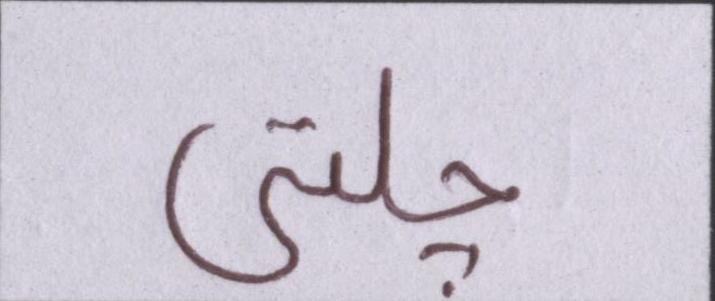 چلتی